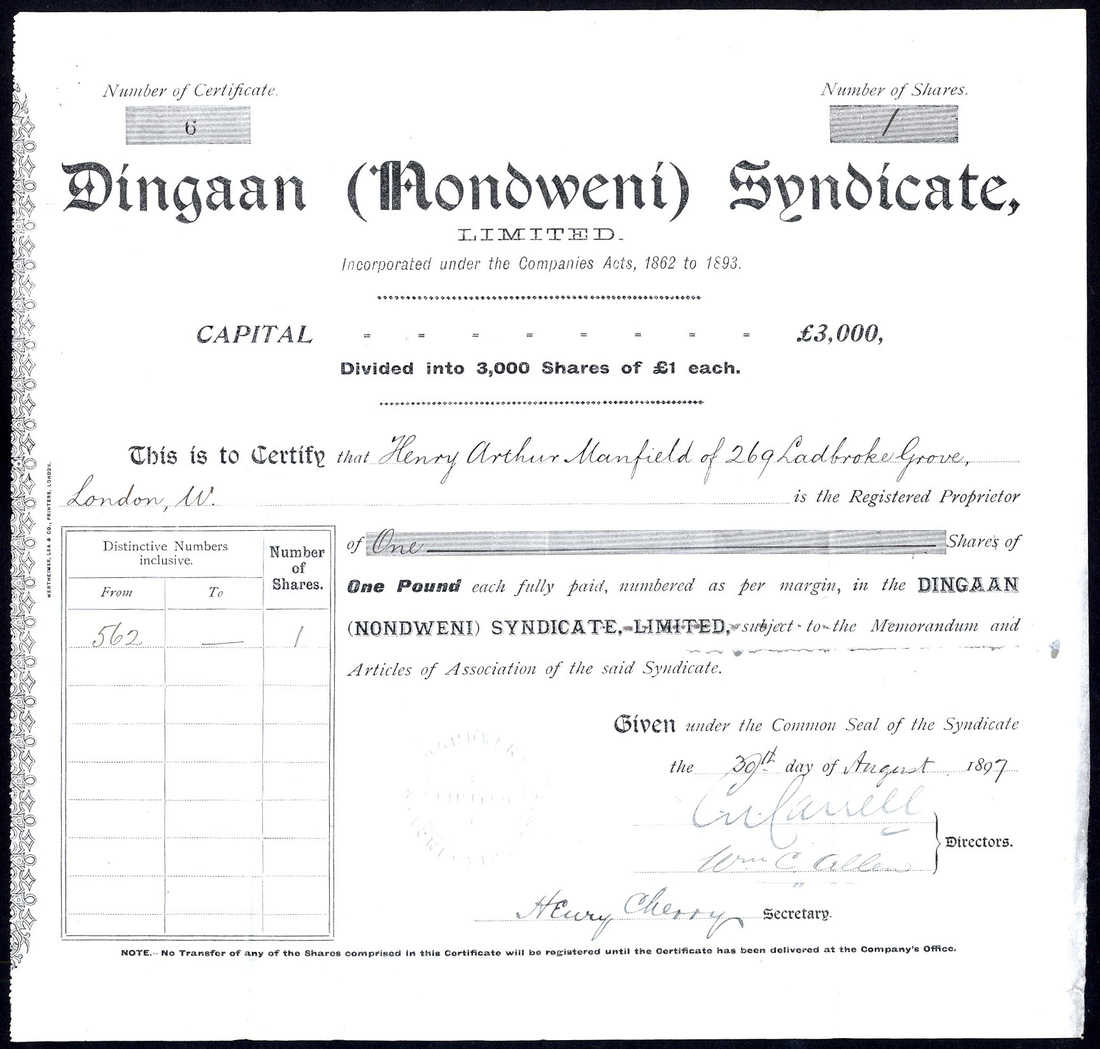 Number of Certificate.
6
Number of Shares.
1
Dingaan (Nondweni) Syndicate,
LIMITED.
Incorporated under the Companies Acts, 1862 to 1893.
CAPITAL - - - - - - - - £3,000,
Divided into 3,000 Shares of £1 each.
This is to Certify that Henry Arthur Manfield of 269 Ladbroke Grove,
London, W. is the Registered Proprietor
of One Shares of
One Pound each fully paid, numbered as per margin, in the DINGAAN
(NONDWENI) SYNDICATE, LIMITED, subject to the Memorandum and
Articles of Association of the said Syndicate.
Distinctive Numbers inclusive.
Number of Shares.
From To
562 — 1
Given under the Common Seal of the Syndicate
the 30th day of August 1897
Directors.
Wm C. Allen
Henry Cherry Secretary.
NOTE.—No Transfer of any of the Shares comprised in this Certificate will be registered until the Certificate has been delivered at the Company's Office.
WERTHEIMER, LEA & CO., PRINTERS, LONDON.